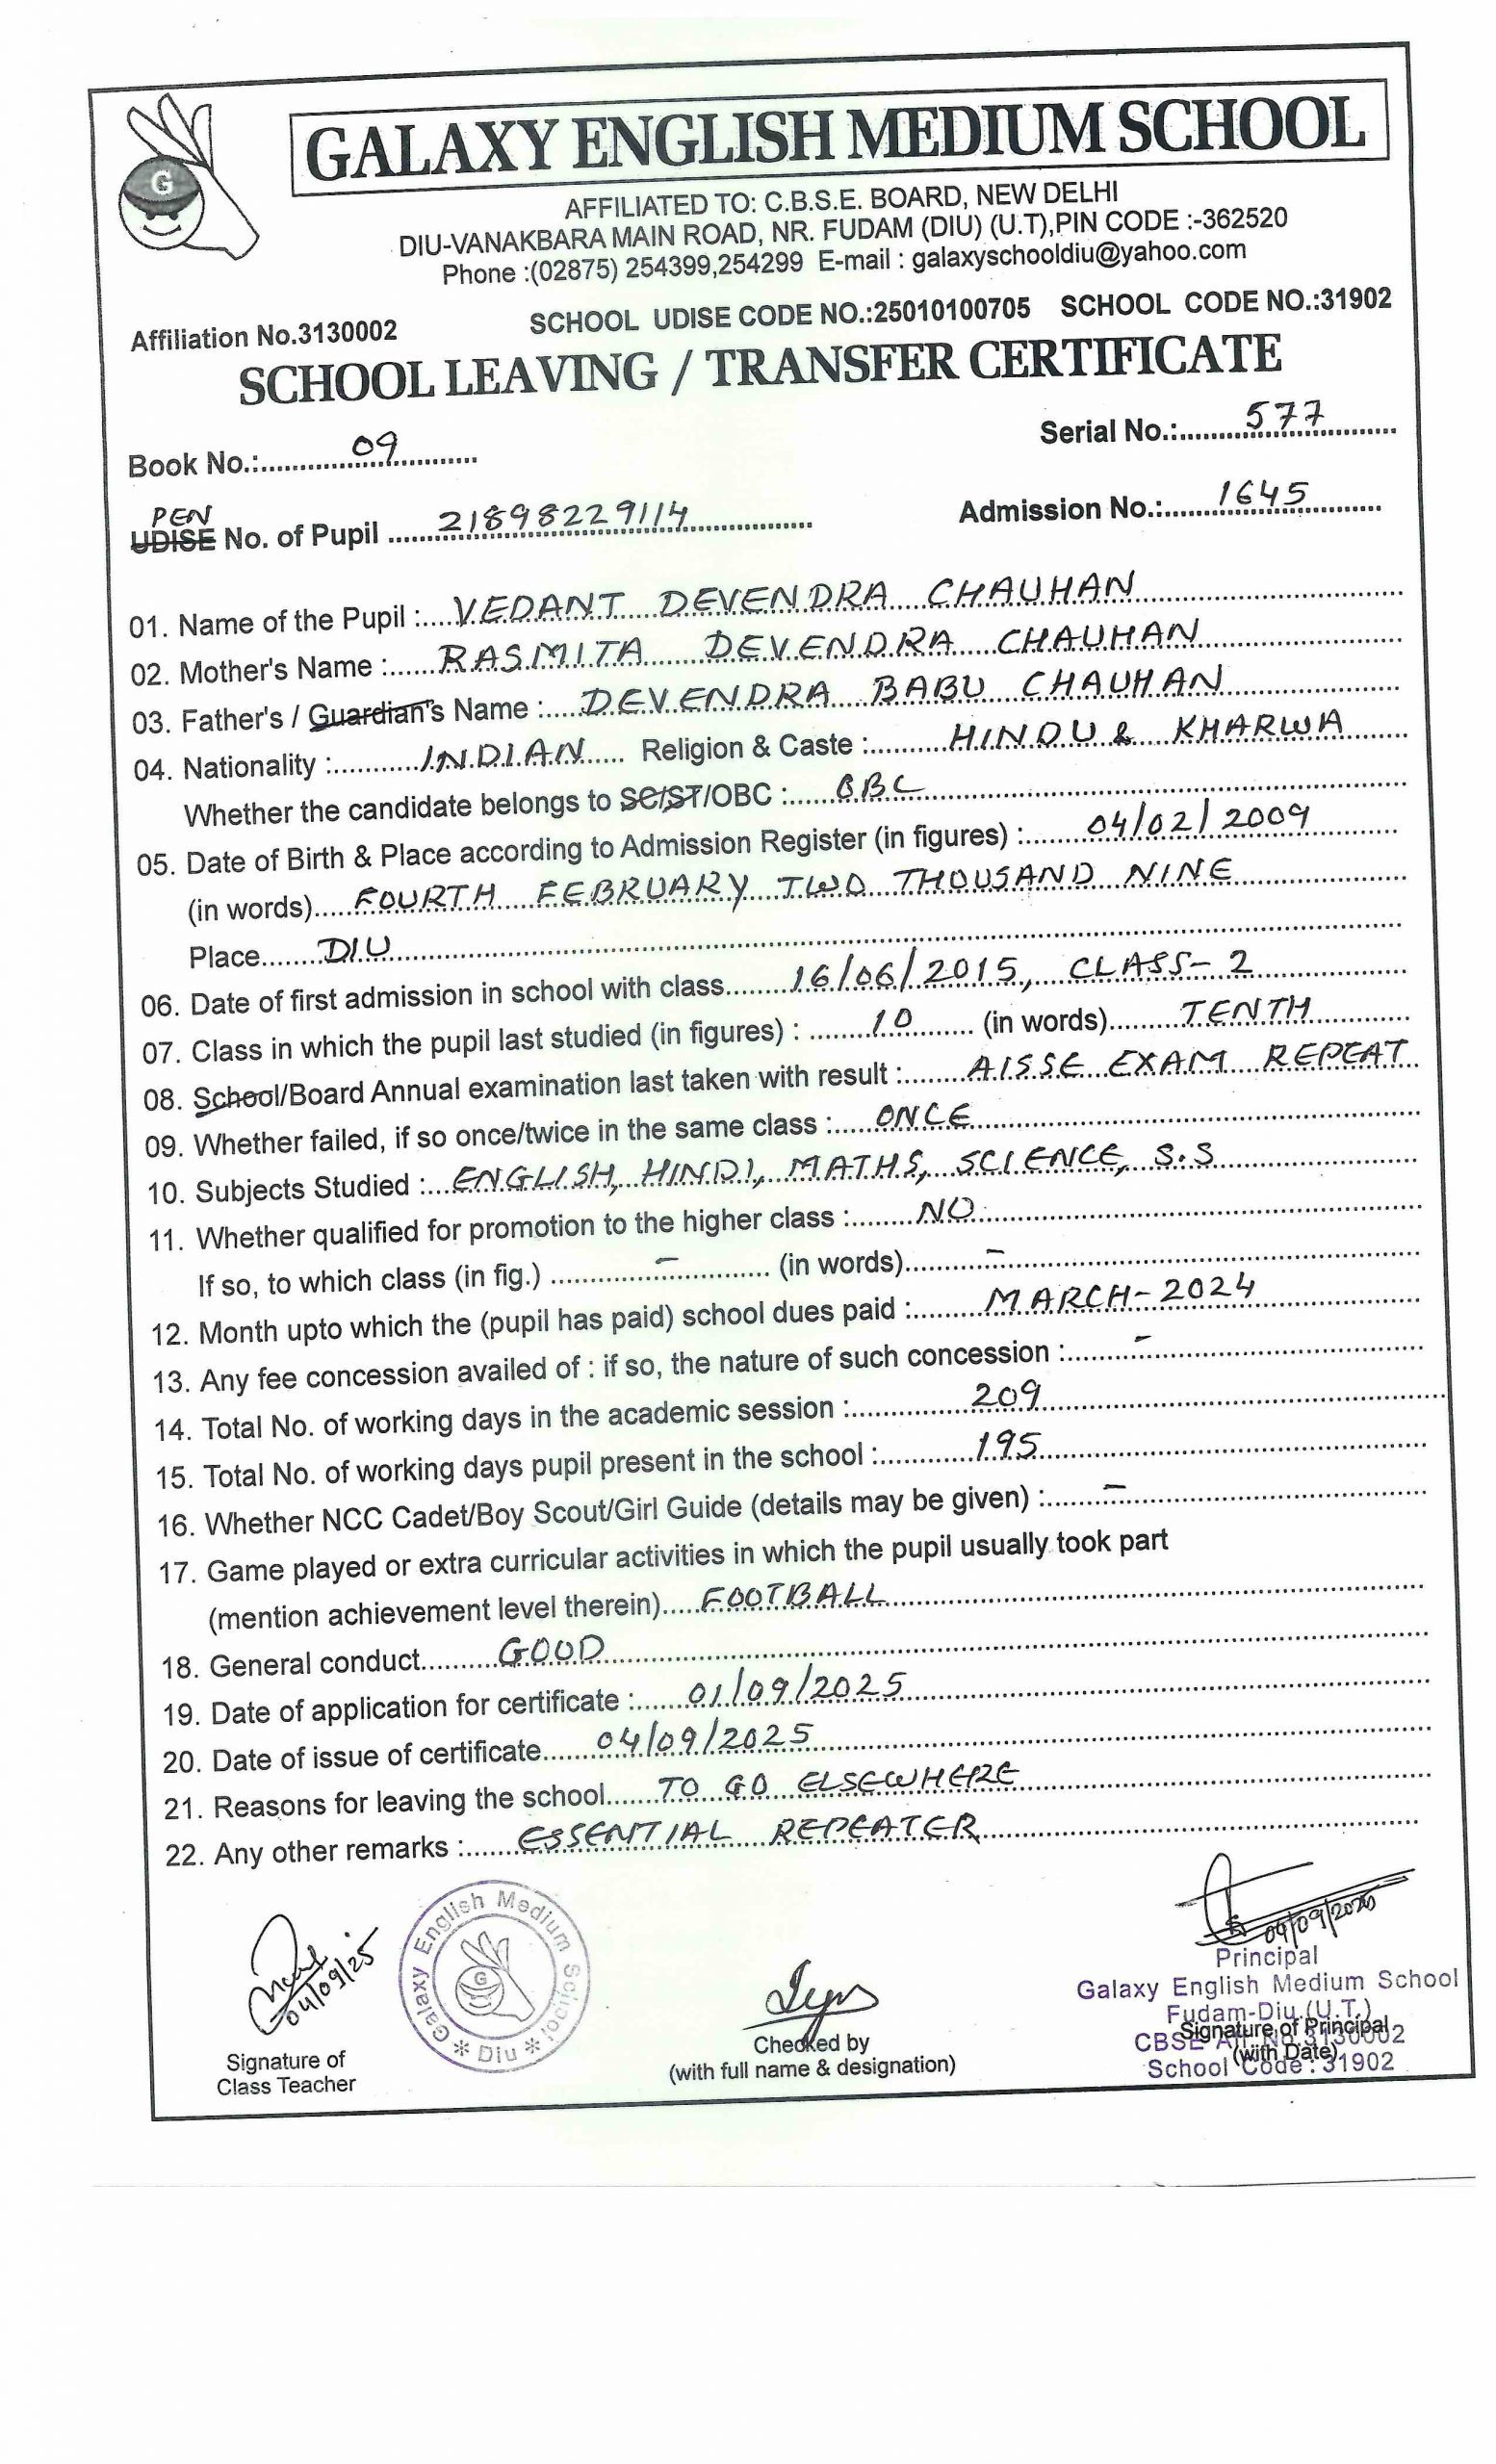 G
GALAXY ENGLISH MEDIUM SCHOOL
AFFILIATED TO: C.B.S.E. BOARD, NEW DELHI
DIU-VANAKBARA MAIN ROAD, NR. FUDAM (DIU) (U.T),PIN CODE :-362520
Phone :(02875) 254399,254299 E-mail : galaxyschooldiu@yahoo.com
Affiliation No.3130002 SCHOOL UDISE CODE NO.:25010100705 SCHOOL CODE NO.:31902
SCHOOL LEAVING / TRANSFER CERTIFICATE
Book No.: 09 Serial No.: 577
PEN
UDISE No. of Pupil 21898229114 Admission No.: 1645
01. Name of the Pupil : VEDANT DEVENDRA CHAUHAN
02. Mother's Name : RASMITA DEVENDRA CHAUHAN
03. Father's / Guardian's Name : DEVENDRA BABU CHAUHAN
04. Nationality : INDIAN Religion & Caste : HINDU & KHARWA
Whether the candidate belongs to SC/ST/OBC : OBC
05. Date of Birth & Place according to Admission Register (in figures) : 04/02/2009
(in words) FOURTH FEBRUARY TWO THOUSAND NINE
Place DIU
06. Date of first admission in school with class 16/06/2015, CLASS-2
07. Class in which the pupil last studied (in figures) : 10 (in words) TENTH
08. School/Board Annual examination last taken with result : AISSE EXAM REPEAT
09. Whether failed, if so once/twice in the same class : ONCE
10. Subjects Studied : ENGLISH, HINDI, MATHS, SCIENCE, S.S
11. Whether qualified for promotion to the higher class : NO
If so, to which class (in fig.) - (in words) -
12. Month upto which the (pupil has paid) school dues paid : MARCH-2024
13. Any fee concession availed of : if so, the nature of such concession : -
14. Total No. of working days in the academic session : 209
15. Total No. of working days pupil present in the school : 195
16. Whether NCC Cadet/Boy Scout/Girl Guide (details may be given) : -
17. Game played or extra curricular activities in which the pupil usually took part
(mention achievement level therein) FOOTBALL
18. General conduct GOOD
19. Date of application for certificate : 01/09/2025
20. Date of issue of certificate 04/09/2025
21. Reasons for leaving the school TO GO ELSEWHERE
22. Any other remarks : ESSENTIAL REPEATER
04/09/25
Signature of
Class Teacher
Galaxy English Medium School
* Diu *
G
Checked by
(with full name & designation)
Principal
Galaxy English Medium School
Fudam-Diu.(U.T.)
Signature of Principal
CBSE Aff. No. 3130002
(with Date)
School Code : 31902